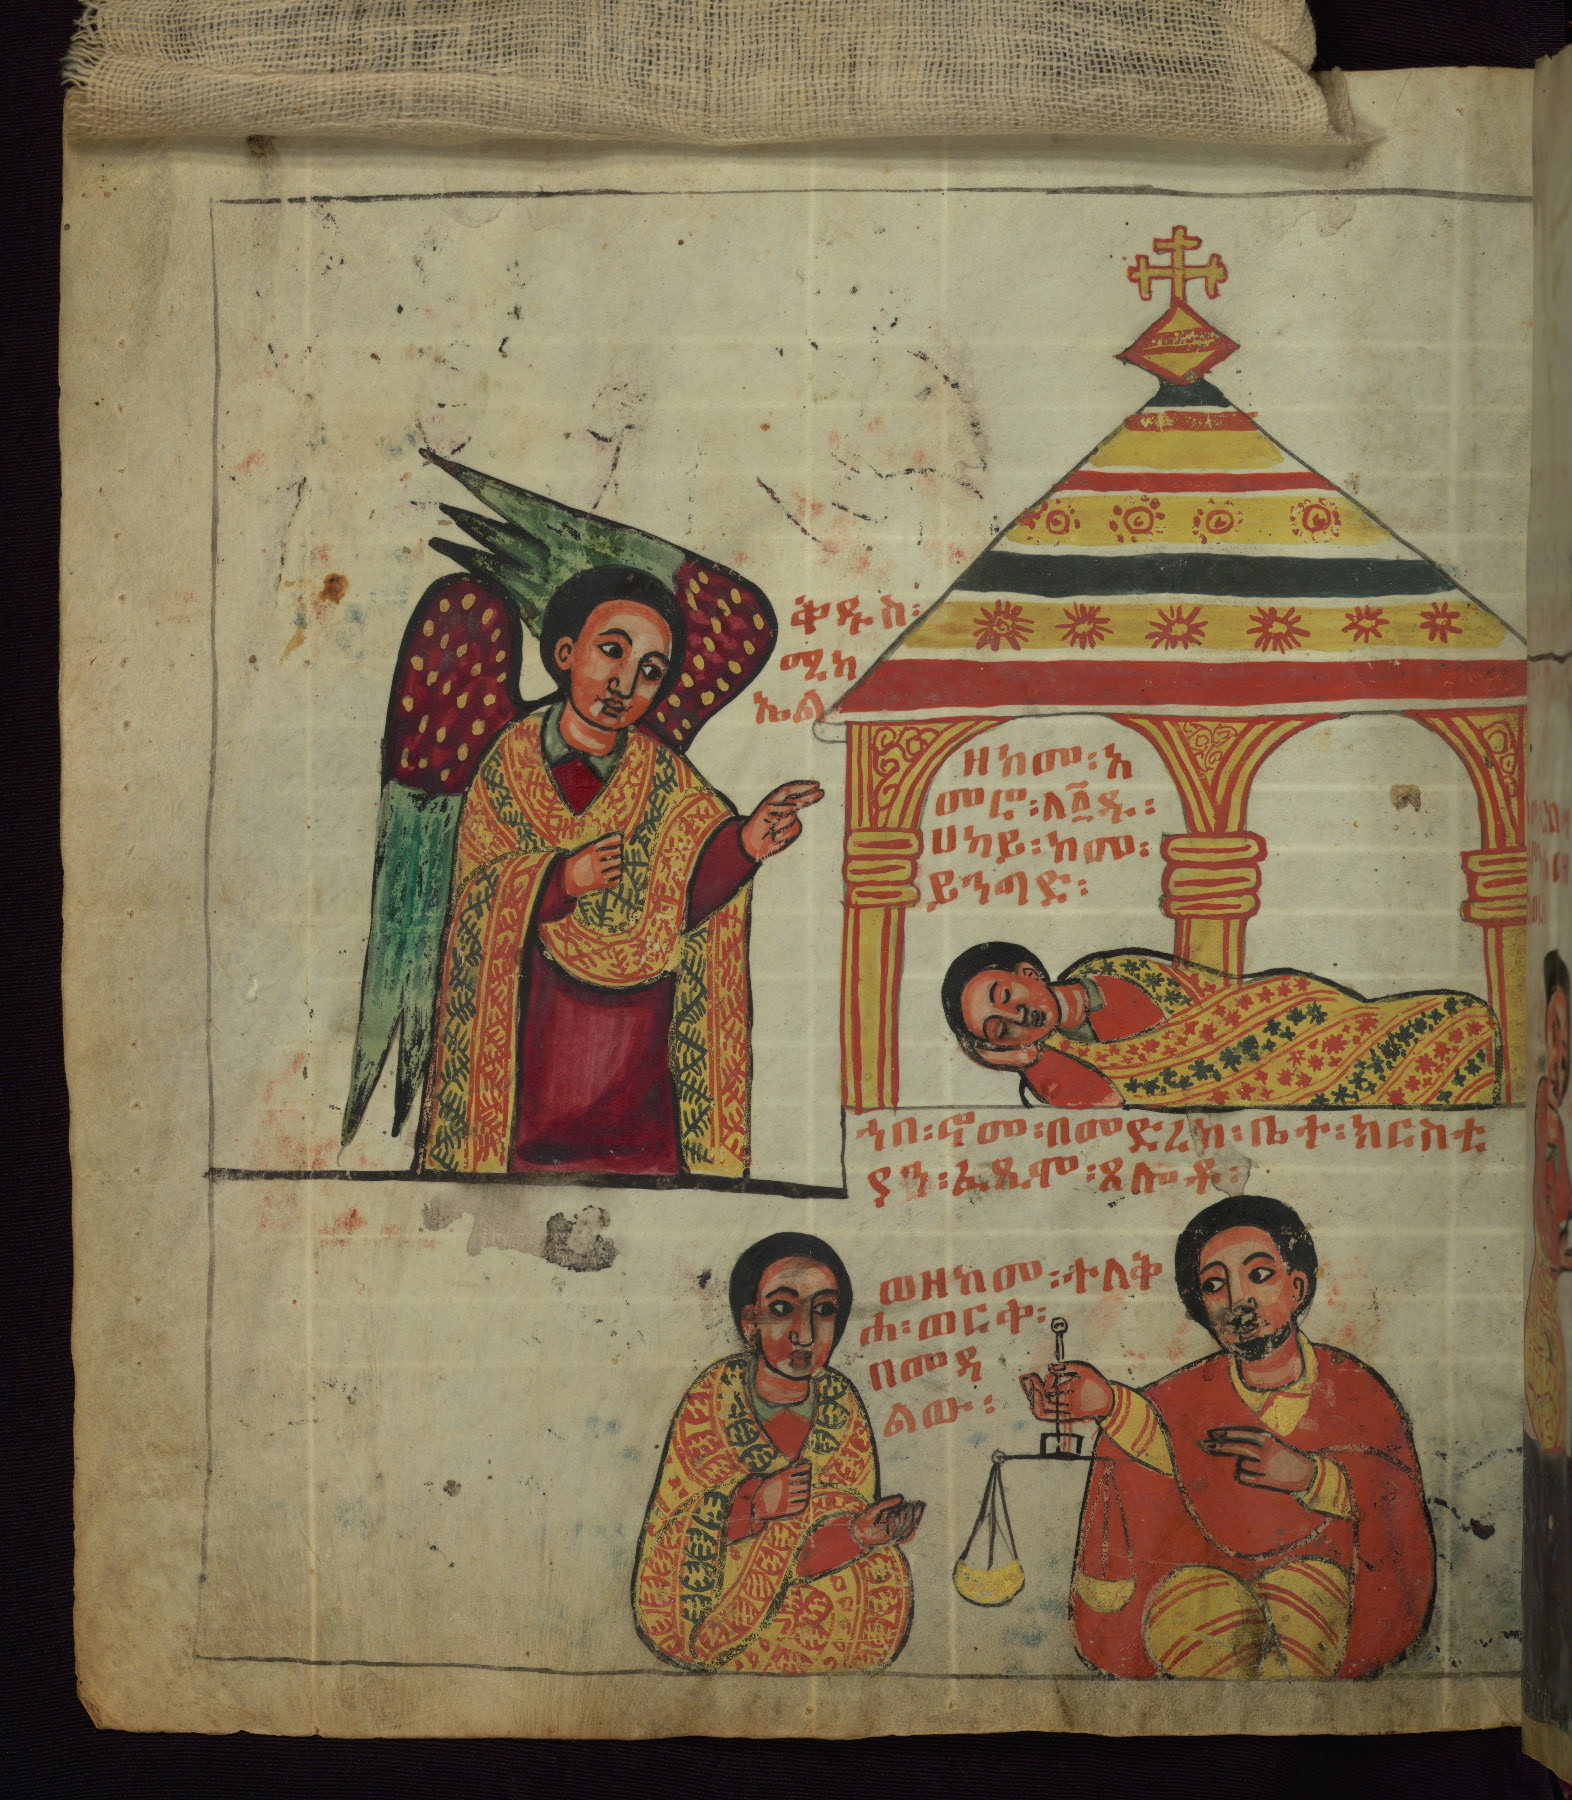 ቅዱስ፡
ሚካ
ኤል
ዘከመ፡አ
መሮ፡ለ፩ዱ፡
ሀካይ፡ከመ፡
ይንግድ፡
ኀበ፡ኖመ፡በመድረክ፡ቤተ፡ክርስቲ
ያን፡ፈጺሞ፡ጸሎቶ፡
ወዘከመ፡ተለቅ
ሐ፡ወርቀ፡
በመዳ
ልው፡